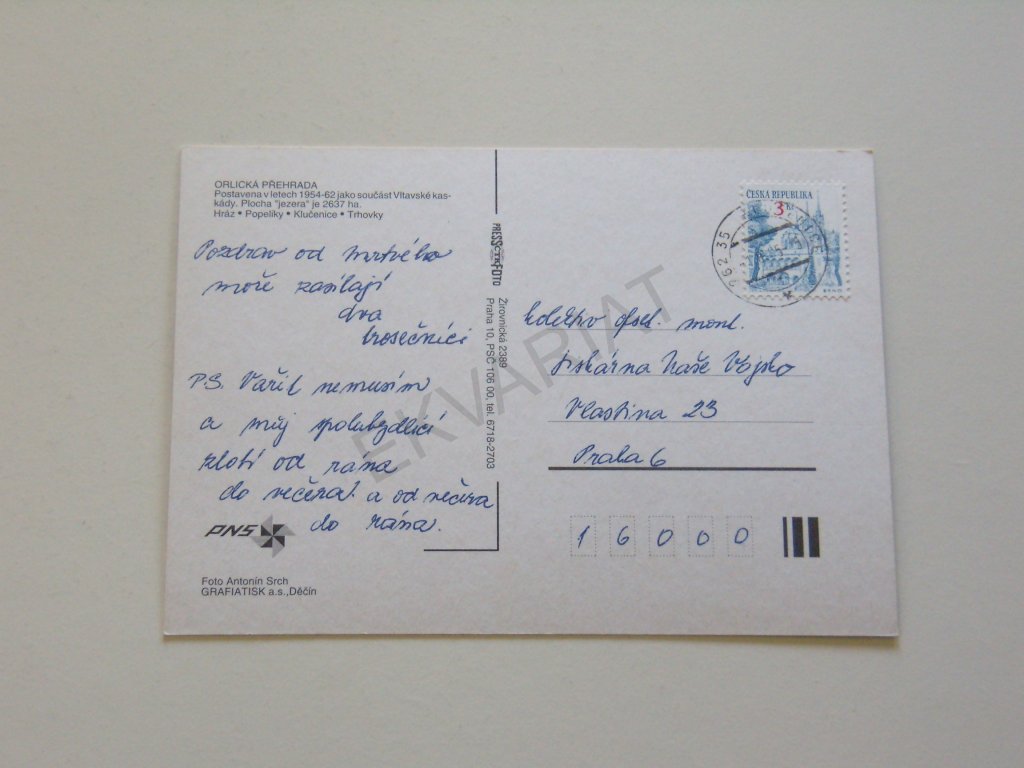 ORLICKÁ PŘEHRADA
Postavena v letech 1954-62 jako součást Vltavské kas-
kády. Plocha "jezera" je 2637 ha.
Hráz • Popelíky • Klučenice • Trhovky
Pozdrav od mrtvého
moře zasílají
dva
trosečníci
P.S. Vařit nemusím
a můj spolubydlící
zlobí od rána
do večera a od večera
do rána.
PNS
Foto Antonín Srch
GRAFIATISK a.s.,Děčín
PRESSFOTO
Žirovnická 2389
Praha 10, PSČ 106 00, tel. 6718-2703
ČESKA REPUBLIKA
3 Kč
262 35
kolektiv ofset. mont.
tiskárna Naše Vojsko
Vlastina 23
Praha 6
16000
EKVARIAT